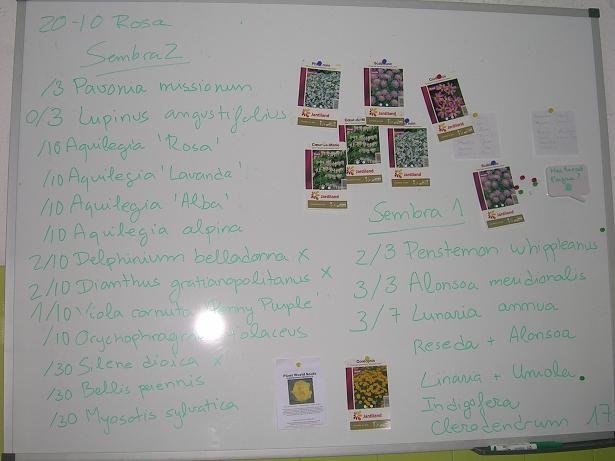 20-10 Rosa
Sembra 2
/3 Pavonia missionum
0/3 Lupinus angustifolius
/10 Aquilegia 'Rosa'
/10 Aquilegia 'Lavanda'
/10 Aquilegia 'Alba'
/10 Aquilegia alpina
2/10 Delphinium belladonna x
2/10 Dianthus gratianopolitanus x
1/10 Viola cornuta 'Penny Purple'
/10 Orychophragmus violaceus
/30 Silene dioica x
/30 Bellis perennis
/30 Myosotis sylvatica
Jardiland
Jardiland
Jardiland
Jardiland
Sembra 1
2/3 Penstemon whippleanus
3/3 Alonsoa meridionalis
3/7 Lunaria annua
Reseda + Alonsoa
Linaria +
Indigofera
Clerodendrum 17
Plant World Seeds
Jardiland